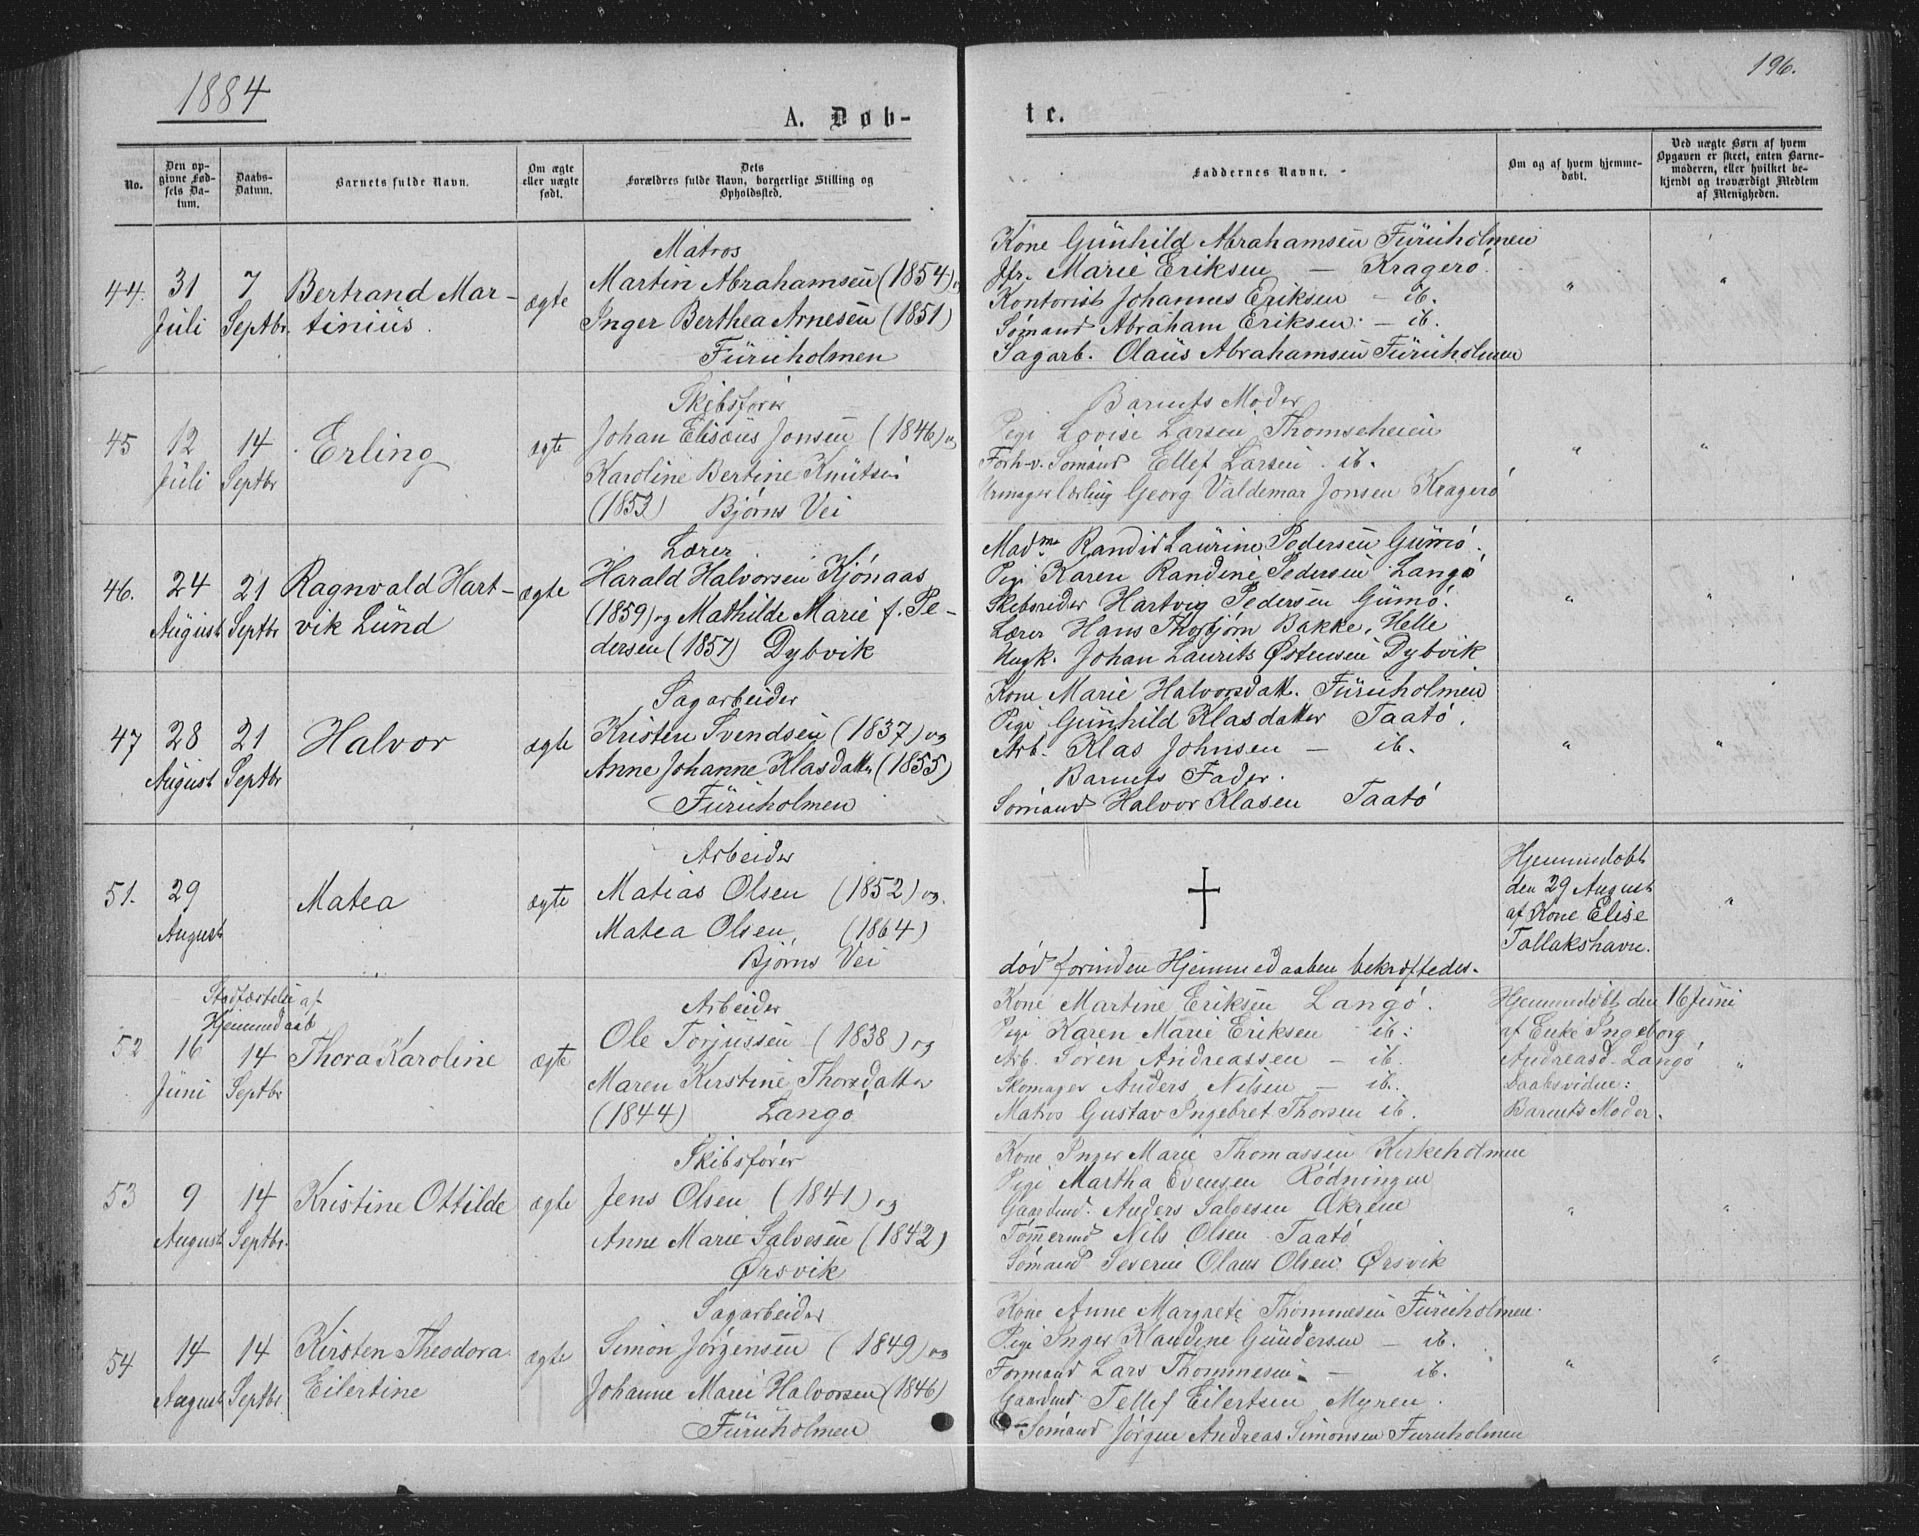 1884
196.
A. Døb-
te.
No.
Den op-
givne Fød-
sels Da-
tum.
Daabs-
Datum.
Barnets fulde Navn.
Om ægte
eller uægte
født.
Dets
Forældres fulde Navn, borgerlige Stilling og
Opholdssted.
Faddernes Navne.
Om og af hvem hjemme-
døbt.
Ved uægte Børn af hvem
Opgaven er skeet, enten Barne-
moderen, eller hvilket be-
kjendt og troværdigt Medlem
af Menigheden.
44. 31 Juli
7 Septbr
Bertrand Mar-
tinius.
ægte
Matros
Martin Abrahamsen (1854) og
Inger Berthea Arnesen (1851)
Furuholmen
Kone Gunhild Abrahamsen Furuholmen
Jfr. Marie Eriksen — Kragerø.
Kontorist Johannes Eriksen — ib.
Sømand Abraham Eriksen — ib.
Sagarb. Olaus Abrahamsen Furuholmen
" "
45 12 Juli
14 Septbr
Erling
ægte
Skibsfører
Johan Elisæus Jonsen (1846) og
Karoline Bertine Knutsen
(1853) Bjørns Vei
Barnets Moder
Pige Lovise Larsen Thomseheien
Forh.v. Sømand Ellef Larsen ib.
Urmagerlærling Georg Valdemar Jonsen Kragerø
" "
46. 24 August
21 Septbr
Ragnvald Hart-
vik Lund
ægte
Lærer
Harald Halvorsen Kjønaas
(1859) og Mathilde Marie f. Pe-
dersen (1857) Dybvik
Madme Randid Laurine Pedersen Gumø.
Pige Karen Randine Pedersen Langø
Skibsreder Hartvig Pedersen Gumø.
Lærer Hans Thorbjørn Bakke, Helle
Ungk. Johan Laurits Østensen Dybvik
" "
47 28 August
21 Septbr
Halvor
ægte
Sagarbeider
Kristen Svendsen (1837) og
Anne Johanne Klasdatter (1855)
Furuholmen
Kone Marie Halvorsdatt. Furuholmen
Pige Gunhild Klasdatter Taatø.
Arb. Klas Johnsen — ib.
Barnets Fader.
Sømand Halvor Klasen Taatø
" "
51. 29 August
Matea
ægte
Arbeider
Matias Olsen (1852) og
Matea Olsen (1864)
Bjørns Vei
død forinden Hjemmedaaben bekræftedes.
Hjemmedøbt
den 29 August
af Kone Elise
Tallakshavn.
"
Stadfæstelse af
Hjemmedaab
52 16 Juni
14 Septbr
Thora Karoline
ægte
Arbeider
Ole Torjussen (1838) og
Maren Kirstine Thorsdatter
(1844) Langø
Kone Martine Eriksen Langø.
Pige Karen Marie Eriksen ib.
Arb. Søren Andreassen — ib.
Skomager Anders Nilsen — ib.
Matros Gustav Ingebret Thorsen ib.
Hjemmedøbt den 16 Juni
af Enke Ingeborg
Andreasd. Langø
Daabsvidne:
Barnets Moder.
"
53 9 August
14 Septbr.
Kristine Ottilde
ægte
Skibsfører
Jens Olsen (1841) og
Anne Marie Salvesen (1842)
Ørsvik
Kone Inger Marie Thomassen Kirkeholmen
Pige Martha Evensen Rødningen
Gaardmd. Anders Salvesen Økrene
Tømmermd Nils Olsen Taatø
Sømand Severin Olaus Olsen Ørsvik
" "
54 14 August
14 Septbr
Kirsten Theodora
Eilertine
ægte
Sagarbeider
Simon Jørgensen (1849) og
Johanne Marie Halvorsen (1846)
Furuholmen
Kone Anne Margrete Thommesen Furuholmen
Pige Inger Klaudine Gundersen — ib.
Formand Lars Thommesen — ib.
Gaardmd Tellef Eilertsen Myren.
Sømand Jørgen Andreas Simonsen Furuholmen
" "